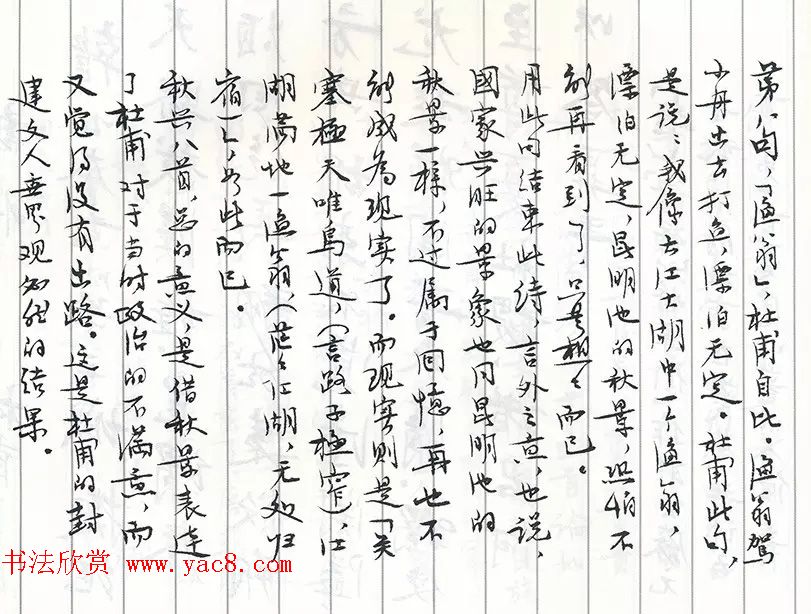 第八句，「渔翁」，杜甫自比。渔翁驾
小舟出去打鱼，漂泊无定。杜甫此句，
是说：我像大江大湖中一个渔翁，
漂泊无定，昆明池的秋景，恐怕不
能再看到了，只是想々而已。
用此句结束此诗，言外之意，也说，
國家兴旺的景象也同昆明池的
秋景一样，不过属于回憶，再也不
能成为现实了。而现实则是「关
塞極天唯鳥道，（言路子極窄），江
湖满地一渔翁，（茫々江湖，无处归
宿）」，如此而已。
秋兴八首，总的意义，是借秋景表达
了杜甫对于当时政治的不满意，而
又觉得没有出路。这是杜甫的封
建文人世界观必然的结果。
书法欣赏 www.yac8.com